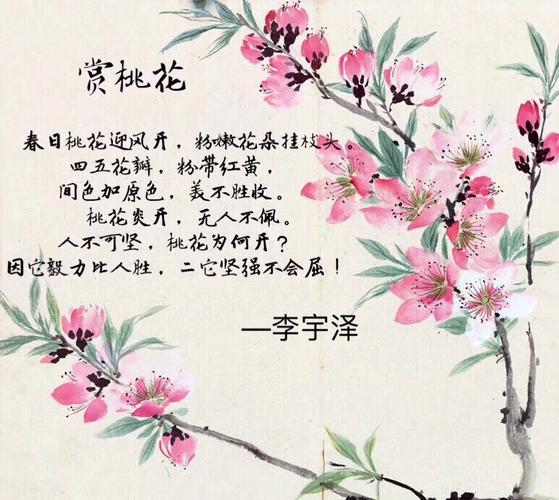 赏桃花
春日桃花迎风开，粉嫩花朵挂枝头。
四五花瓣，粉带红黄，
间色加原色，美不胜收。
桃花炎开，无人不佩。
人不可坚，桃花为何开？
因它毅力比人胜，二它坚强不会屈！
—李宇泽